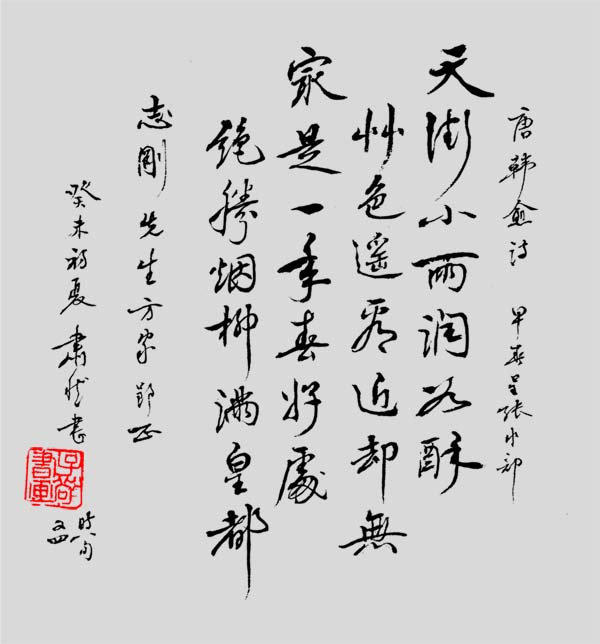 唐韓愈诗 早春呈张水部
天街小雨润如酥
艸色遥看近却無
最是一年春好處
绝勝烟柳满皇都
志剛先生方家郢正
癸未初夏 肃 书
时八旬
又四